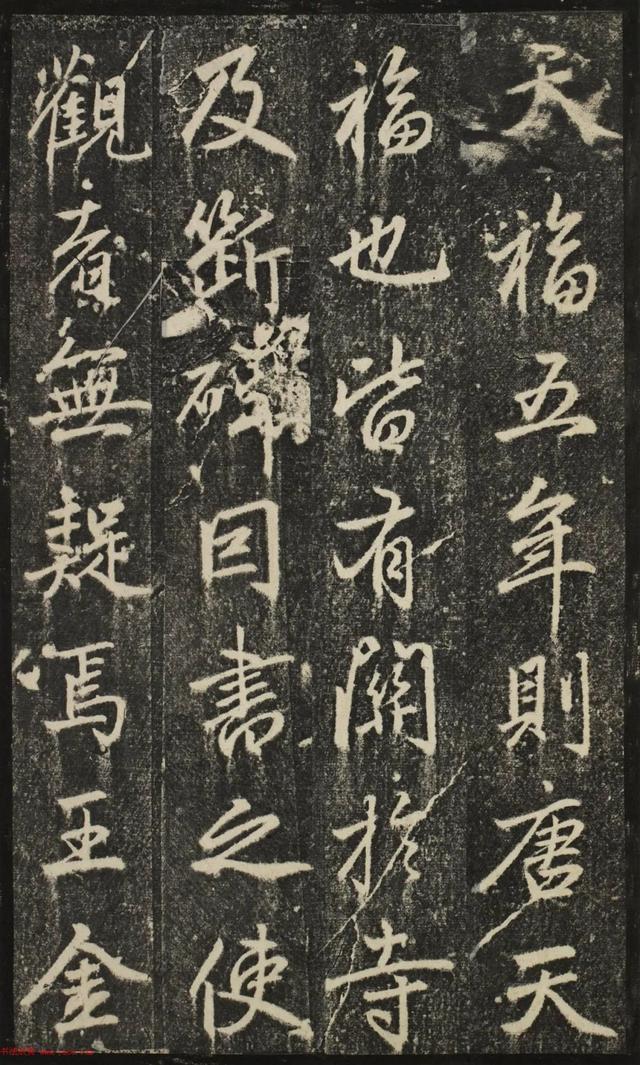 天福五年則唐天
福也皆有關於寺
及断碑因書之使
觀者無疑焉王金